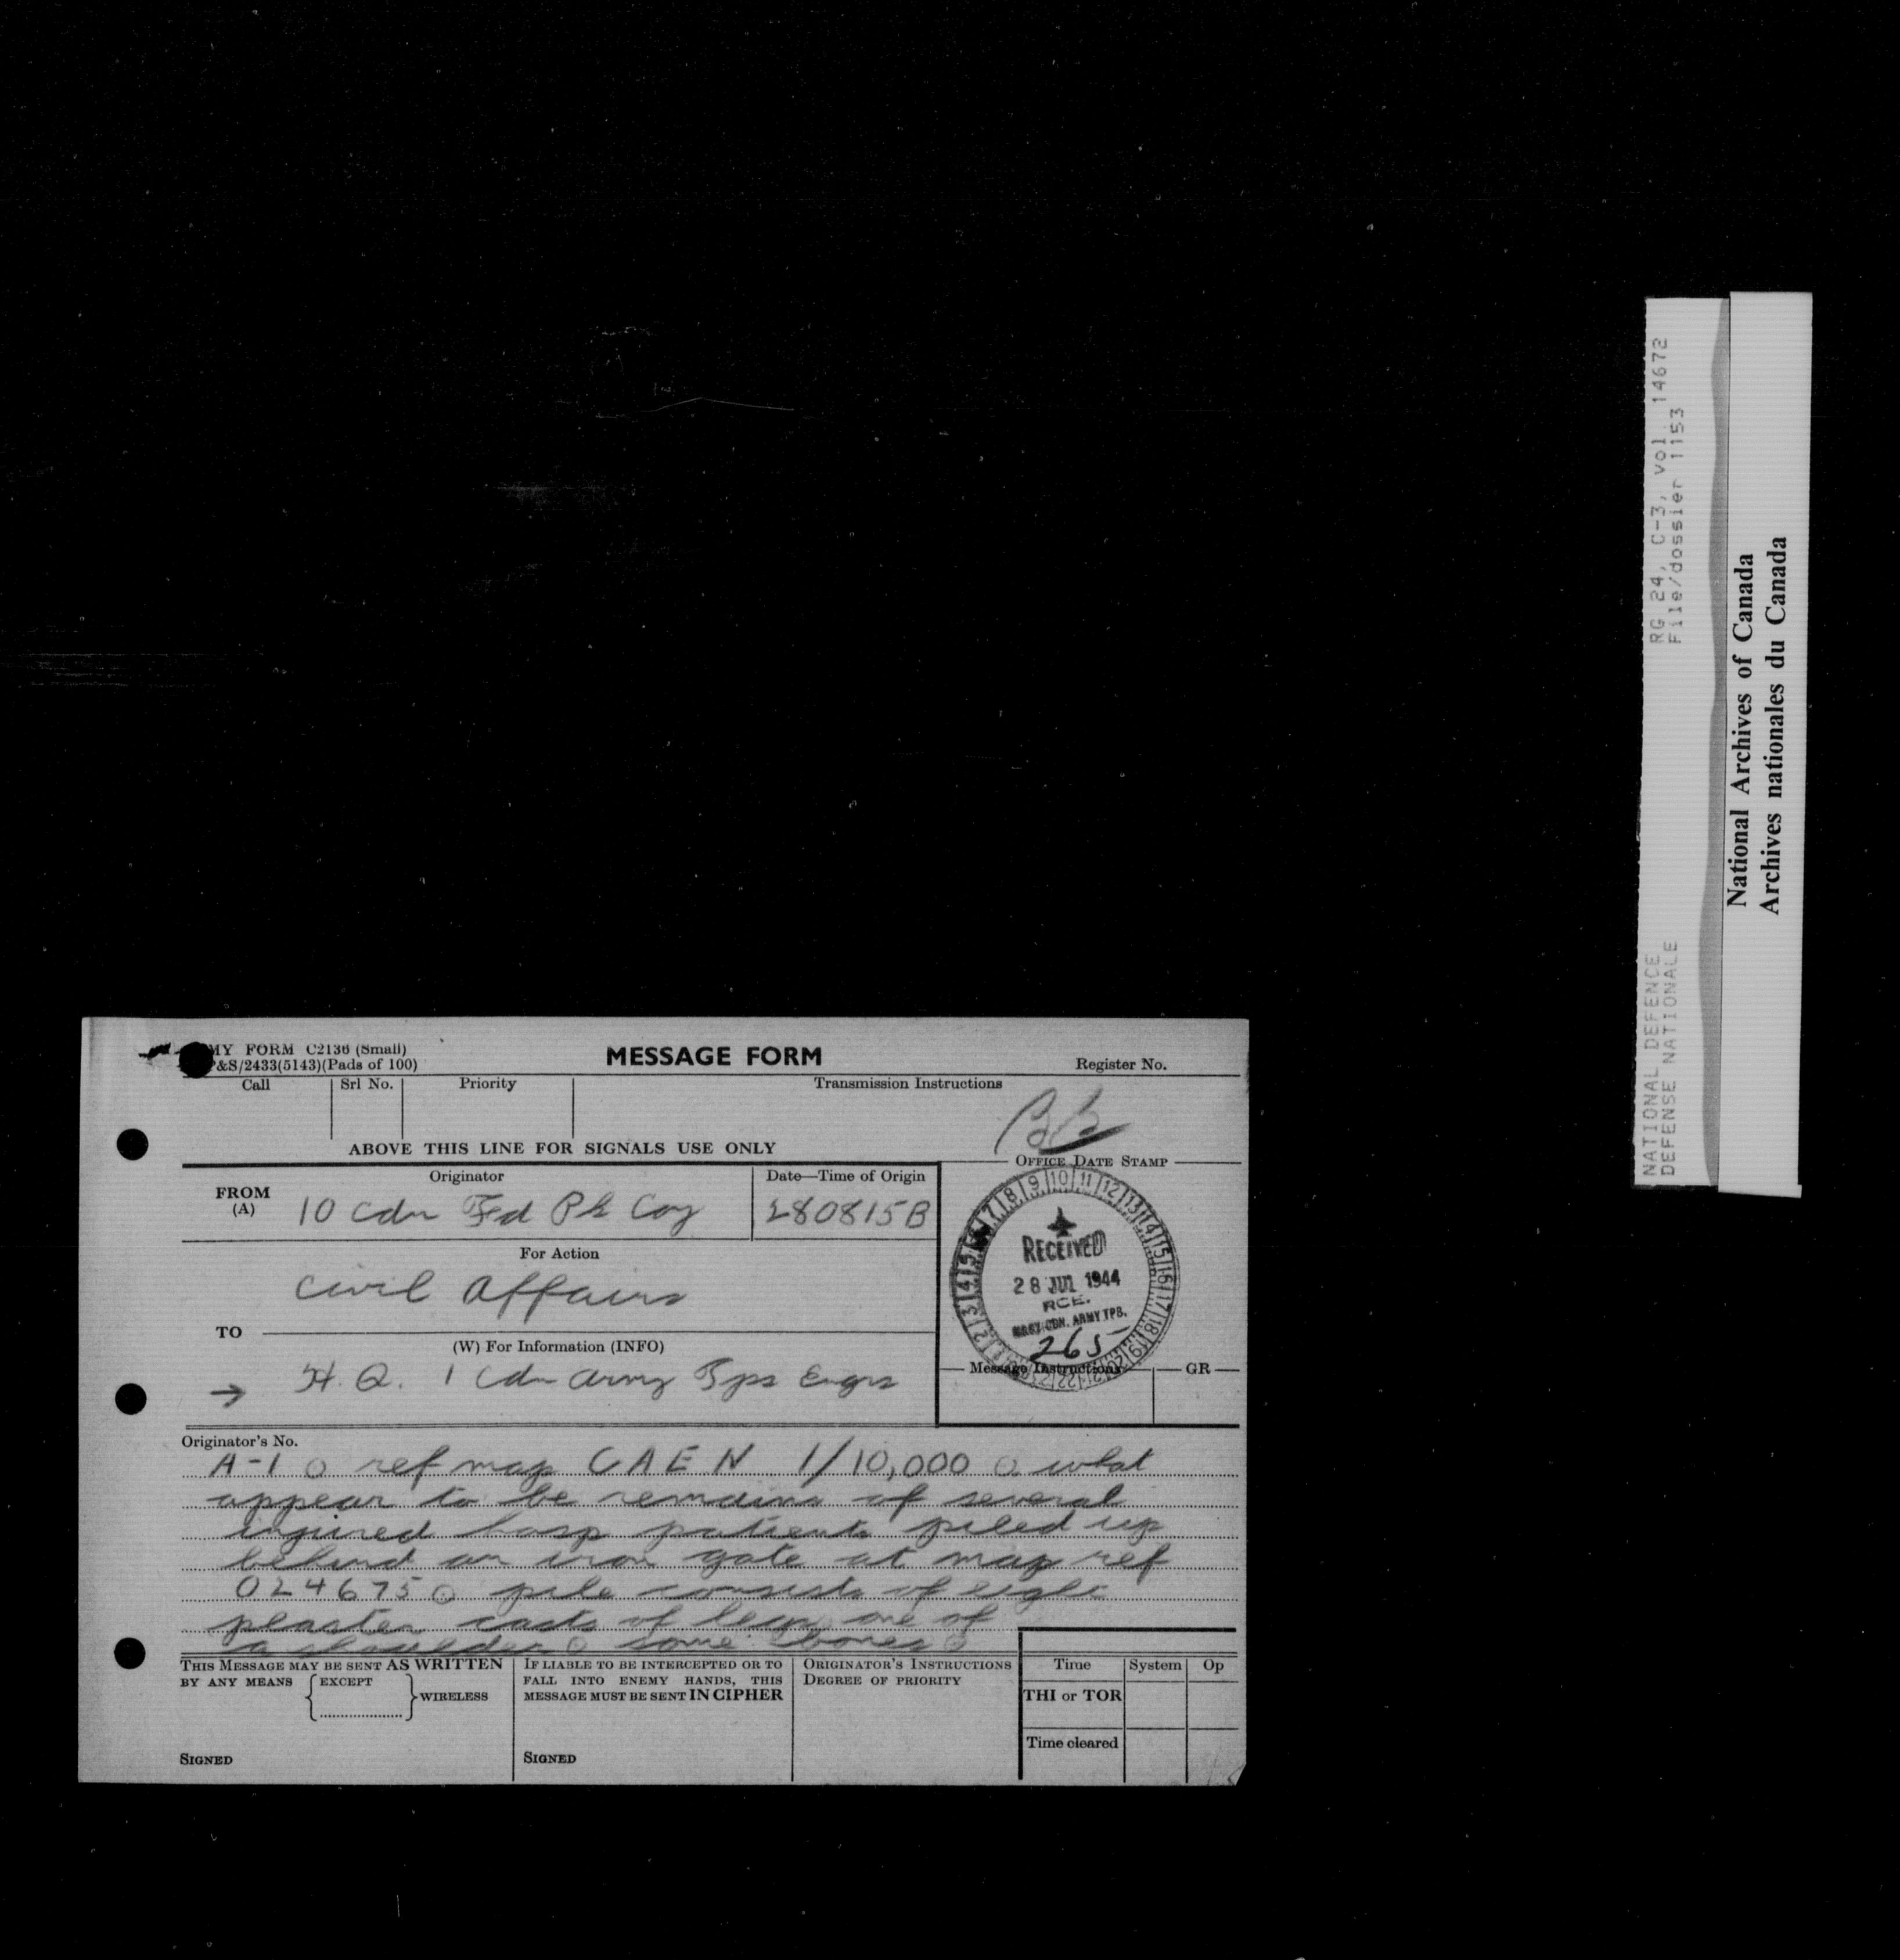 MY FORM C2136 (Small)
P&S/2433(5143)(Pads of 100)
MESSAGE FORM
Register No.
Call Srl No. Priority Transmission Instructions
ABOVE THIS LINE FOR SIGNALS USE ONLY
OFFICE DATE STAMP
FROM (A)
Originator
10 Cdn Fd Pk Coy
Date—Time of Origin
280815B
For Action
Civil Affairs
TO
(W) For Information (INFO)
→ H.Q. 1 Cdn Army Tps Engrs
7 8 9 10 11 12 13 14 15 16 17 18 19 20
RECEIVED
28 JUL 1944
RCE.
CDN. ARMY TPS.
265
Message Instructions GR
Originator's No.
A-1 o ref map CAEN 1/10,000 o what
appear to be remains of several
injured hosp patients piled up
behind an iron gate at map ref
024675 o pile consists of eight
plaster casts of legs one of
a shoulder o some bones o
THIS MESSAGE MAY BE SENT AS WRITTEN
BY ANY MEANS { EXCEPT } WIRELESS
SIGNED
IF LIABLE TO BE INTERCEPTED OR TO
FALL INTO ENEMY HANDS, THIS
MESSAGE MUST BE SENT IN CIPHER
SIGNED
ORIGINATOR'S INSTRUCTIONS
DEGREE OF PRIORITY
Time System Op
THI or TOR
Time cleared
NATIONAL DEFENCE RG 24, C-3, vol. 14672
DEFENSE NATIONALE File/dossier 1153
National Archives of Canada
Archives nationales du Canada